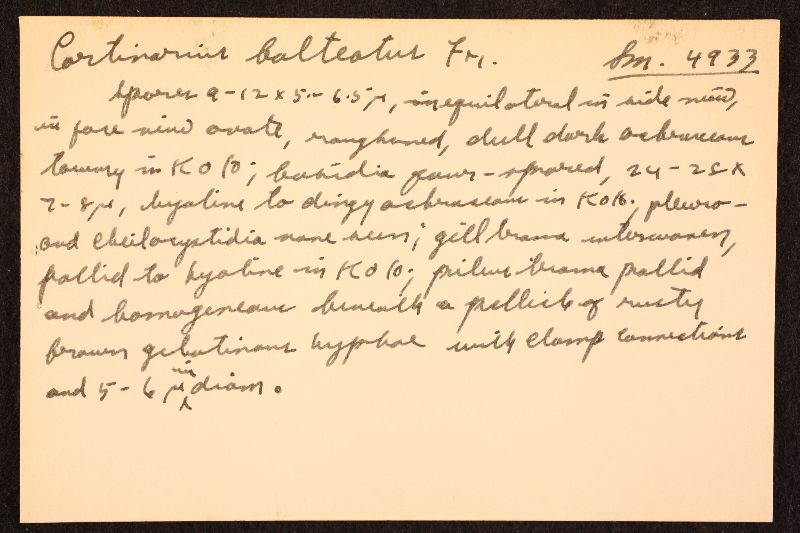 Cortinarius balteatus Fr.
Sm. 4933
Spores 9-12 x 5-6.5 μ, inequilateral in side view,
in face view ovate, roughened, dull dark ochraceous
tawny in KOH; basidia four-spored, 24-28 x
7-8 μ, hyaline to dingy ochraceous in KOH; pleuro-
and cheilocystidia none seen; gill trama interwoven,
pallid to hyaline in KOH; pileus trama pallid
and homogeneous beneath a pellicle of rusty
brown gelatinous hyphae with clamp connections
and 5-6 μ in diam.